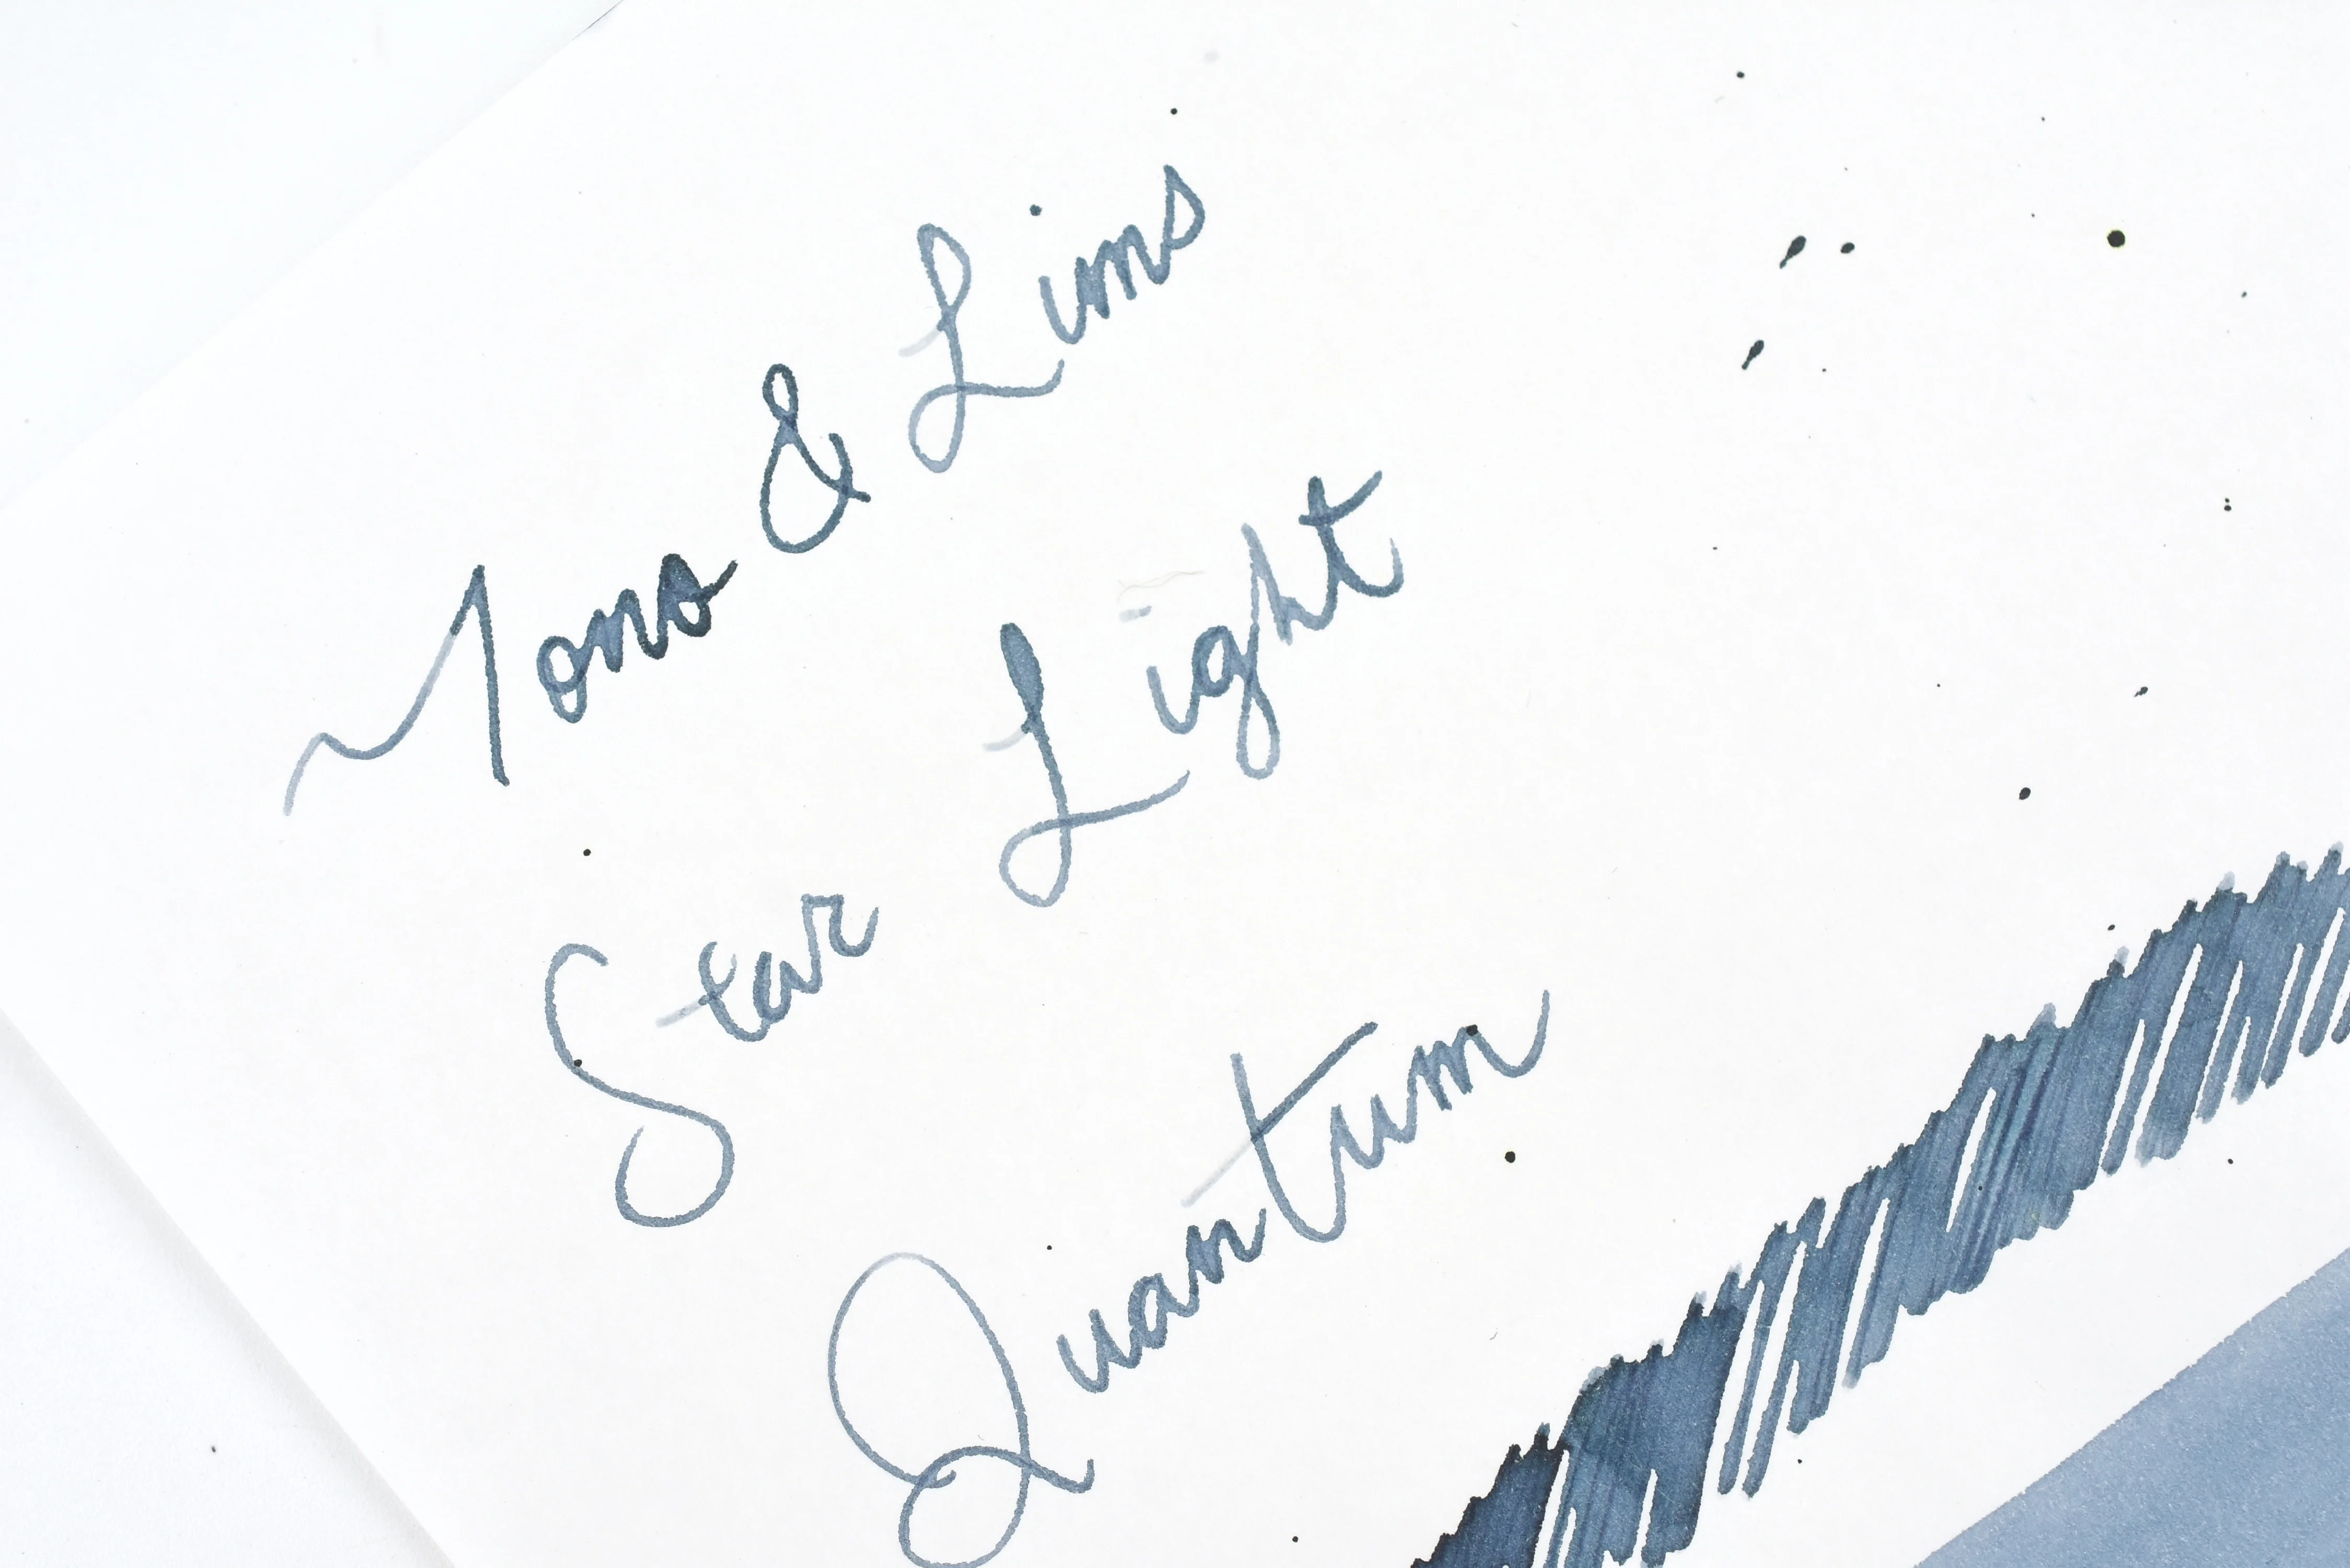 Tono & Lims
Star Light
Quantum